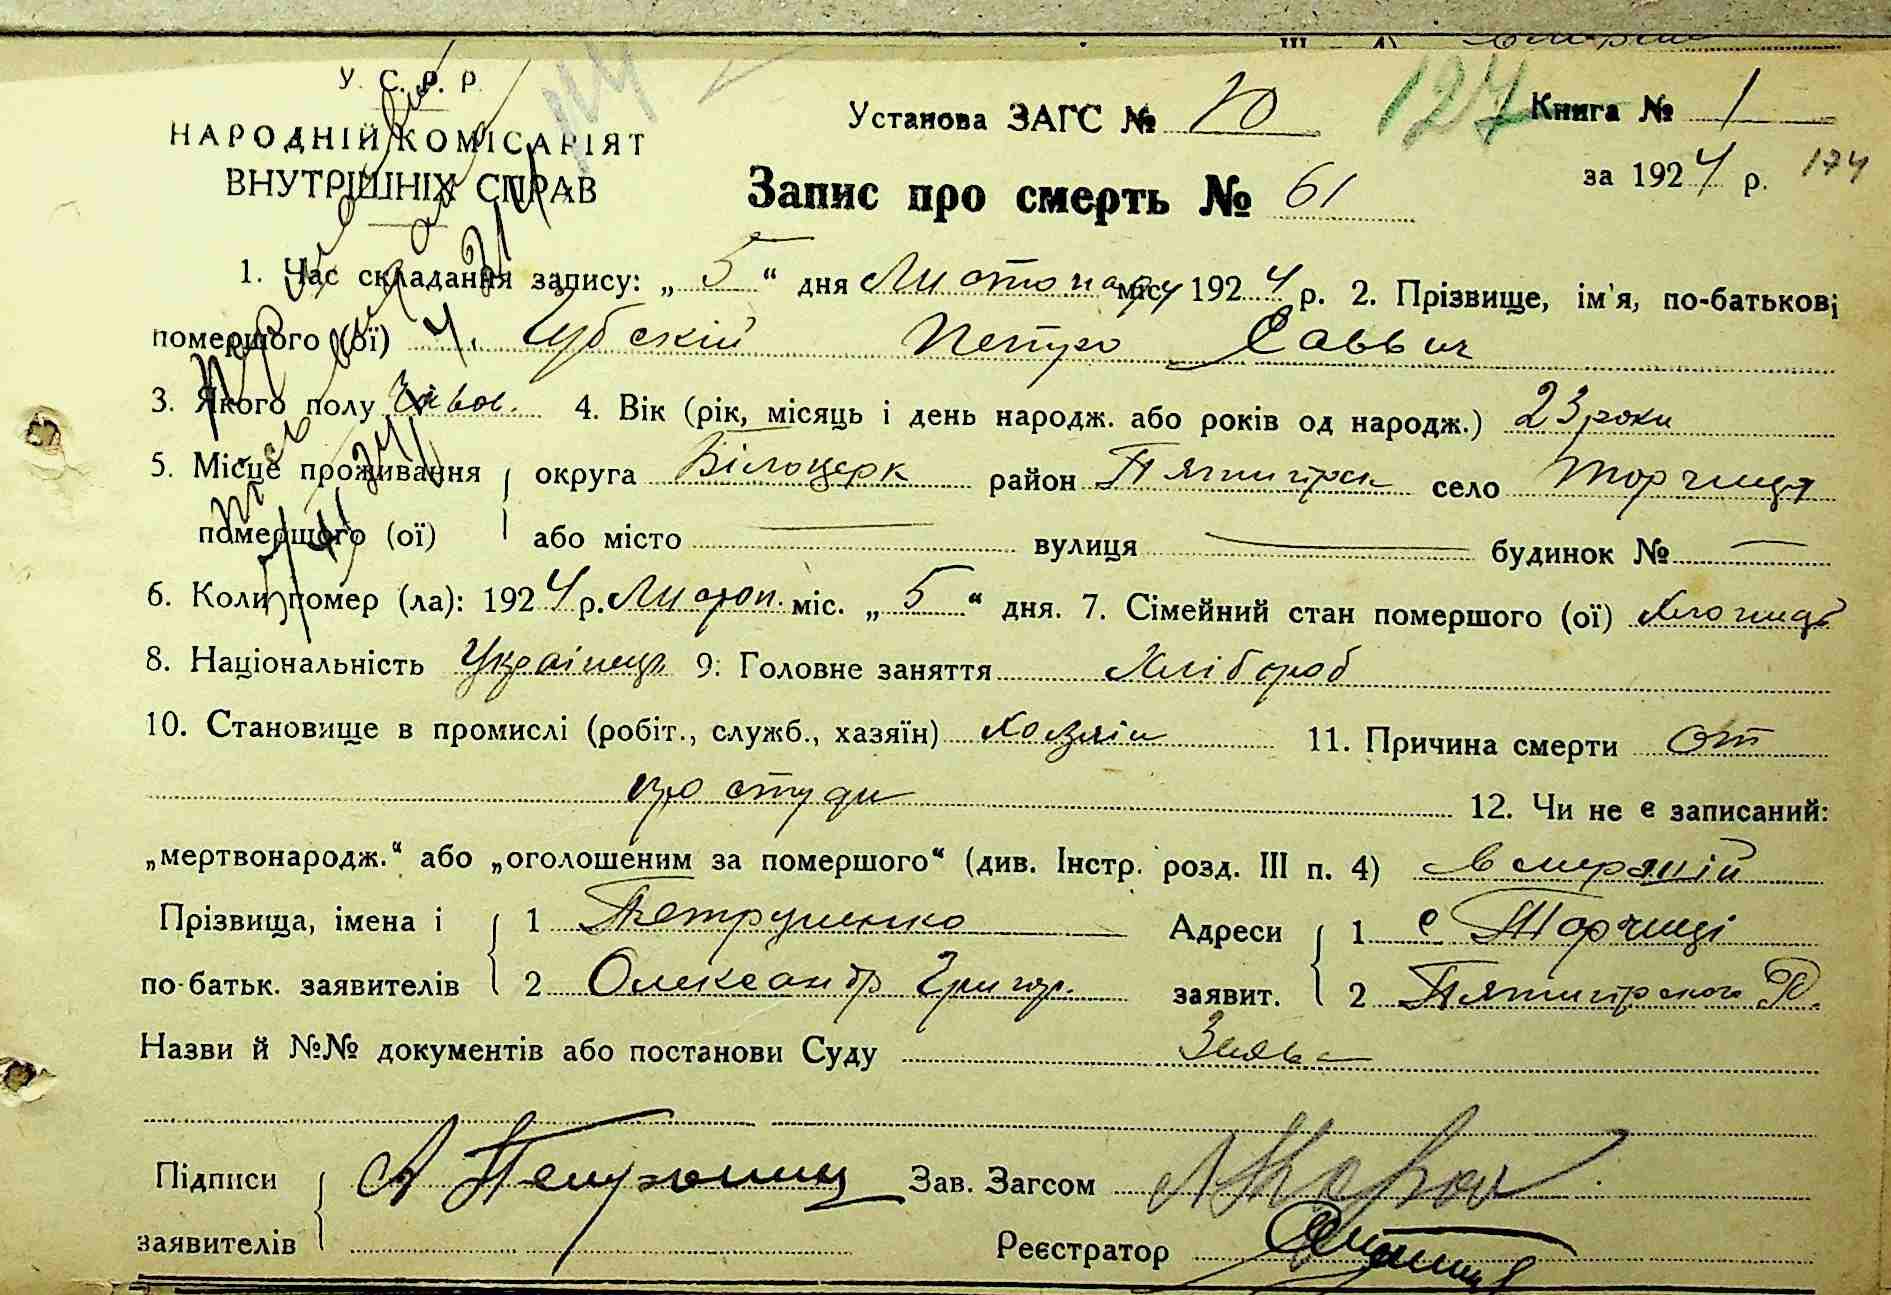 У. С. Р. Р.
НАРОДНІЙ КОМІСАРІЯТ
ВНУТРІШНІХ СПРАВ
Установа ЗАГС № 20
127
Книга № 1
за 1924 р. 174
Запис про смерть № 61
1. Час складання запису: „5“ дня Листопаду міс. 1924 р. 2. Прізвище, ім'я, по-батькові
помершого (ої) Чубскій Петро Саввич
3. Якого полу Чолов. 4. Вік (рік, місяць і день народж. або років од народж.) 23 роки
5. Місце проживання помершого (ої) округа Білоцерк район Пятигірск село Торчиця
або місто — вулиця — будинок № —
6. Коли помер (ла): 1924 р. Листоп. міс. „5“ дня. 7. Сімейний стан помершого (ої) Хлопець
8. Національність Українець 9. Головне заняття Хлібороб
10. Становище в промислі (робіт., служб., хазяїн) Хозяін 11. Причина смерти От
простуди
12. Чи не є записаний:
„мертвонародж.“ або „оголошеним за помершого“ (див. Інстр. розд. III п. 4) Вмерший
Прізвища, імена і по-батьк. заявителів 1 Петрушенко Адреси заявит. 1 с Торчиці
2 Олександр Григор. 2 Пятигірского Р.
Назви й №№ документів або постанови Суду Заява
Підписи заявителів Зав. Загсом
Реєстратор